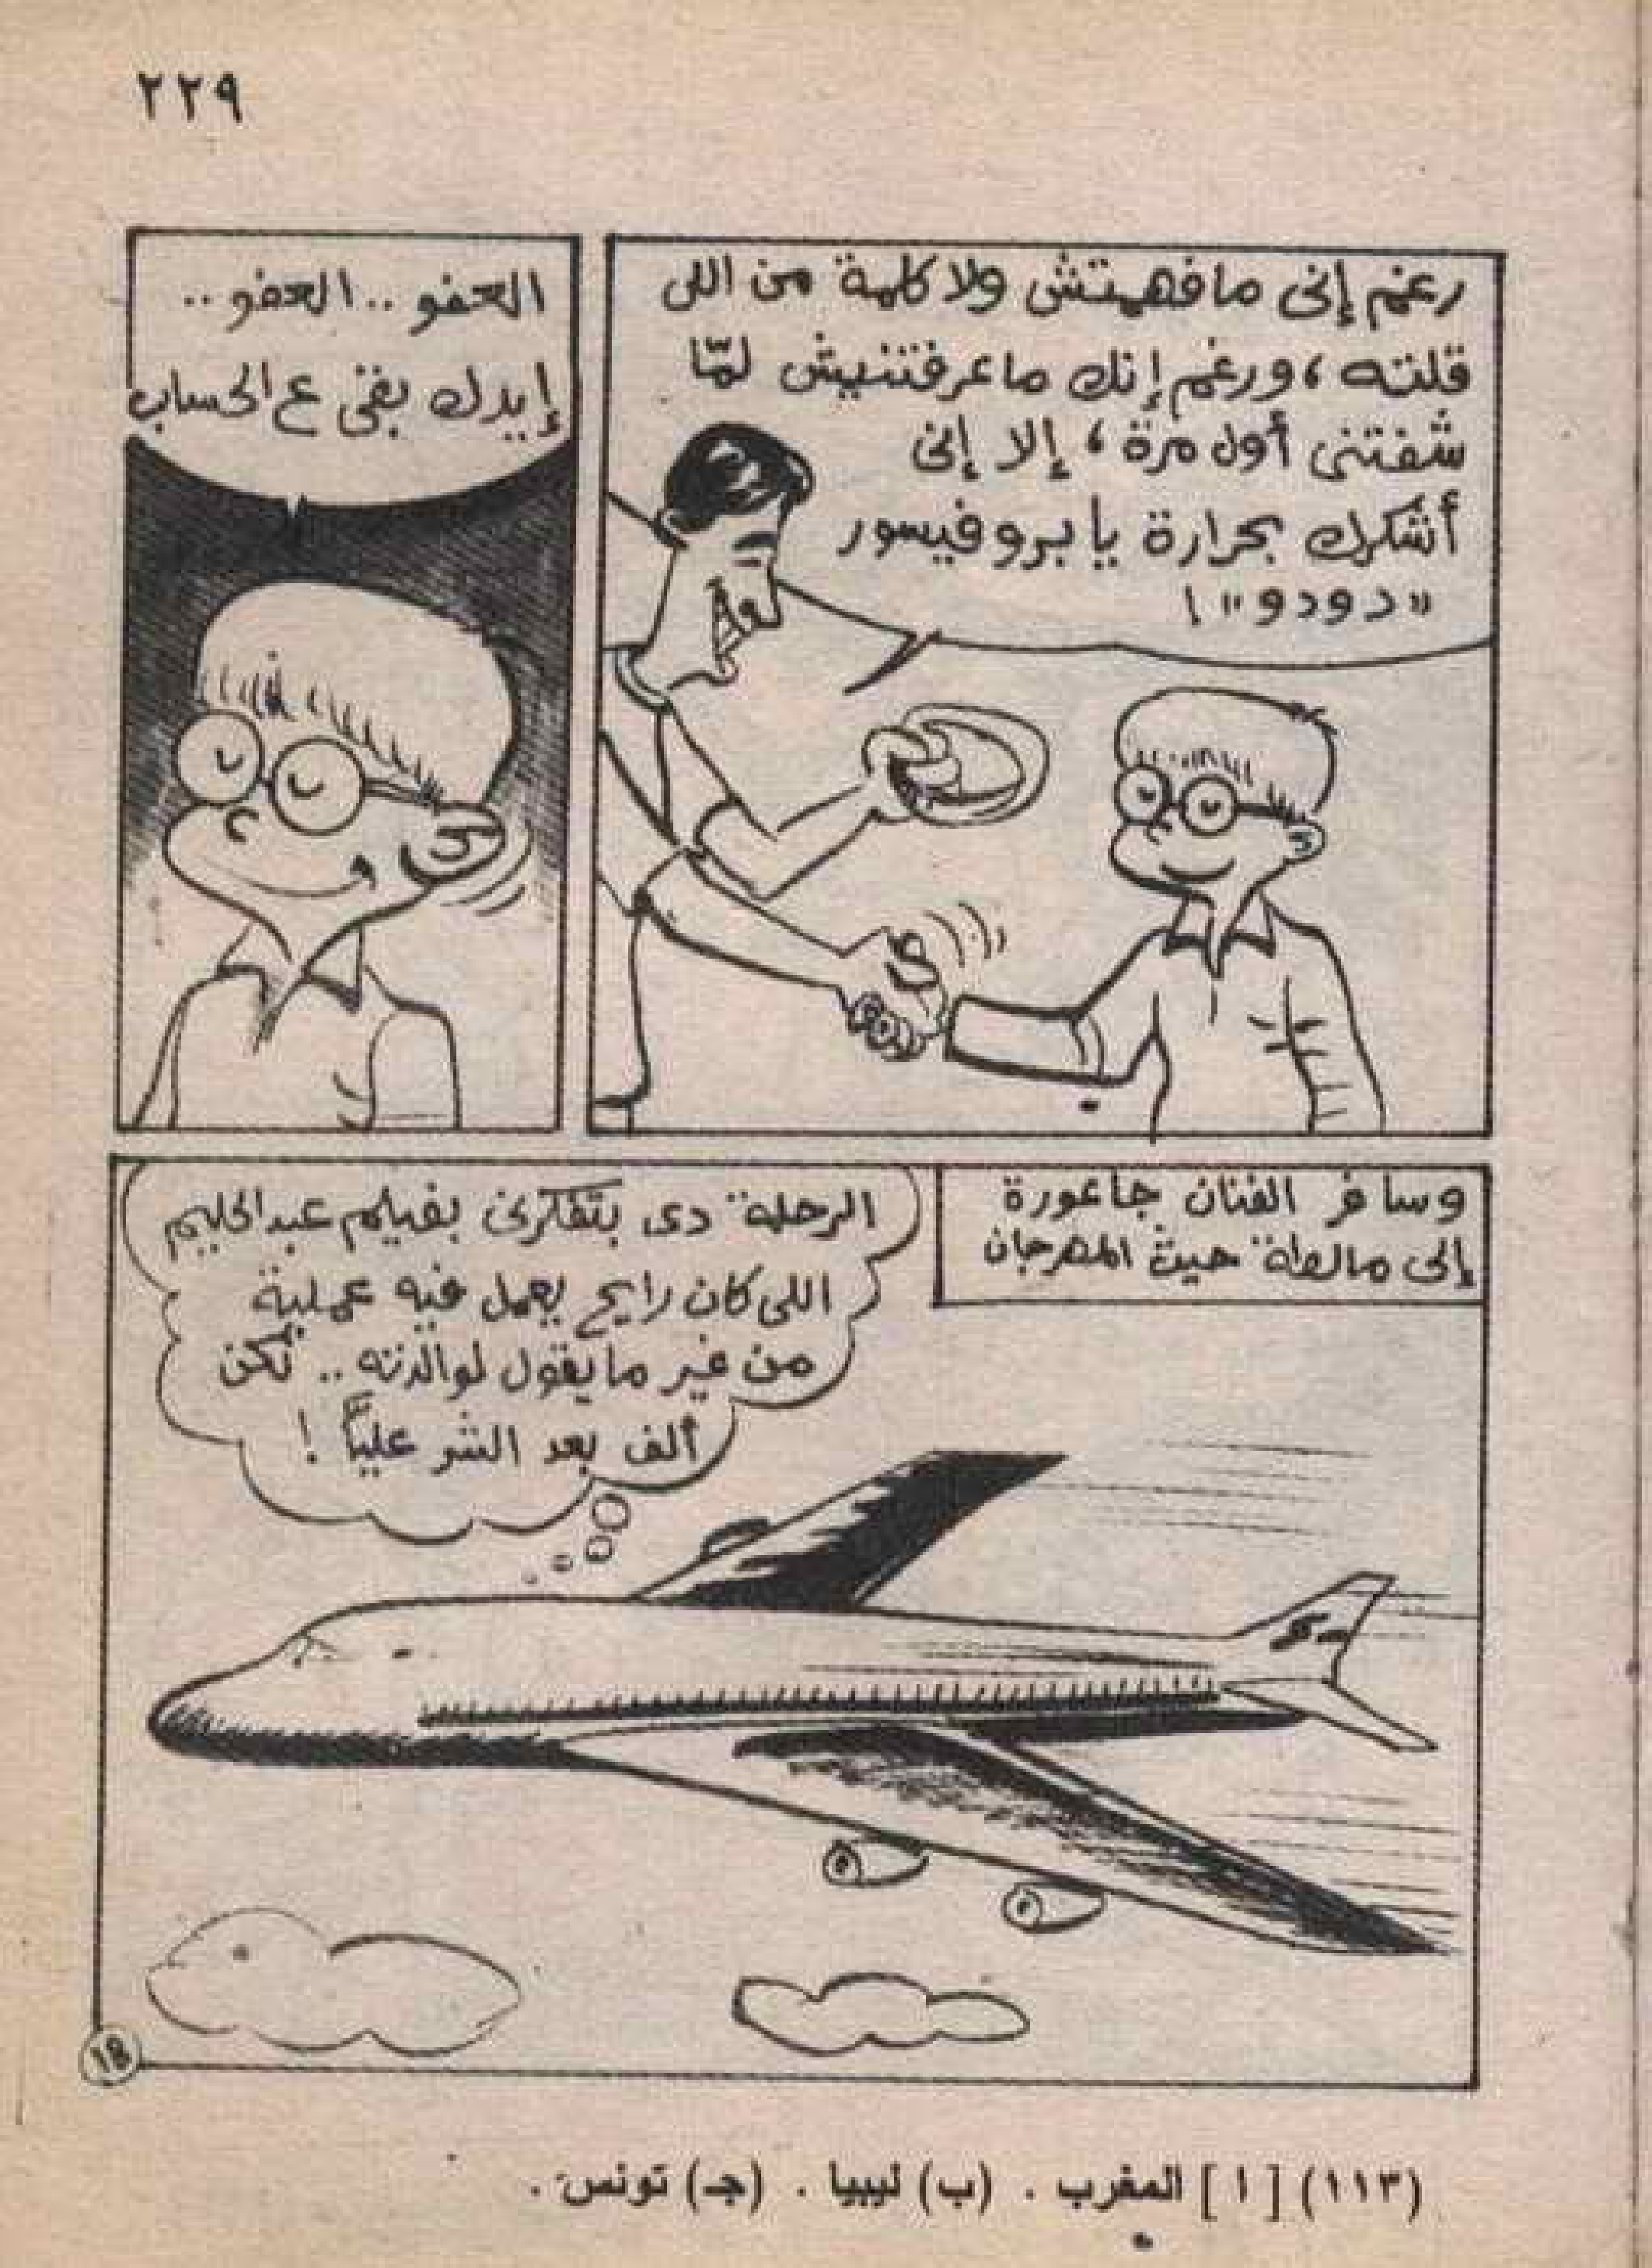 ٢٢٩
رغم إنى مافهمتش ولا كلمة من اللى
قلته ، ورغم إنك ماعرفتنيش لمّا
شفتنى أول مرة ، إلا إنى
أشكرك بحرارة يا بروفيسور
«دودو» !
العفو .. العفو ..
إيدك بقى ع الحساب
وسافر الفنان جاعورة
إلى مالطة حيث المهرجان
الرحلة دى بتفكرنى بفيلم عبد الحليم
اللى كان رايح يعمل فيه عملية
من غير ما يقول لوالدته .. لكن
ألف بعد الشر عليّا !
١٨
(١١٣) [ ا ] المغرب . (ب) ليبيا . (جـ) تونس .